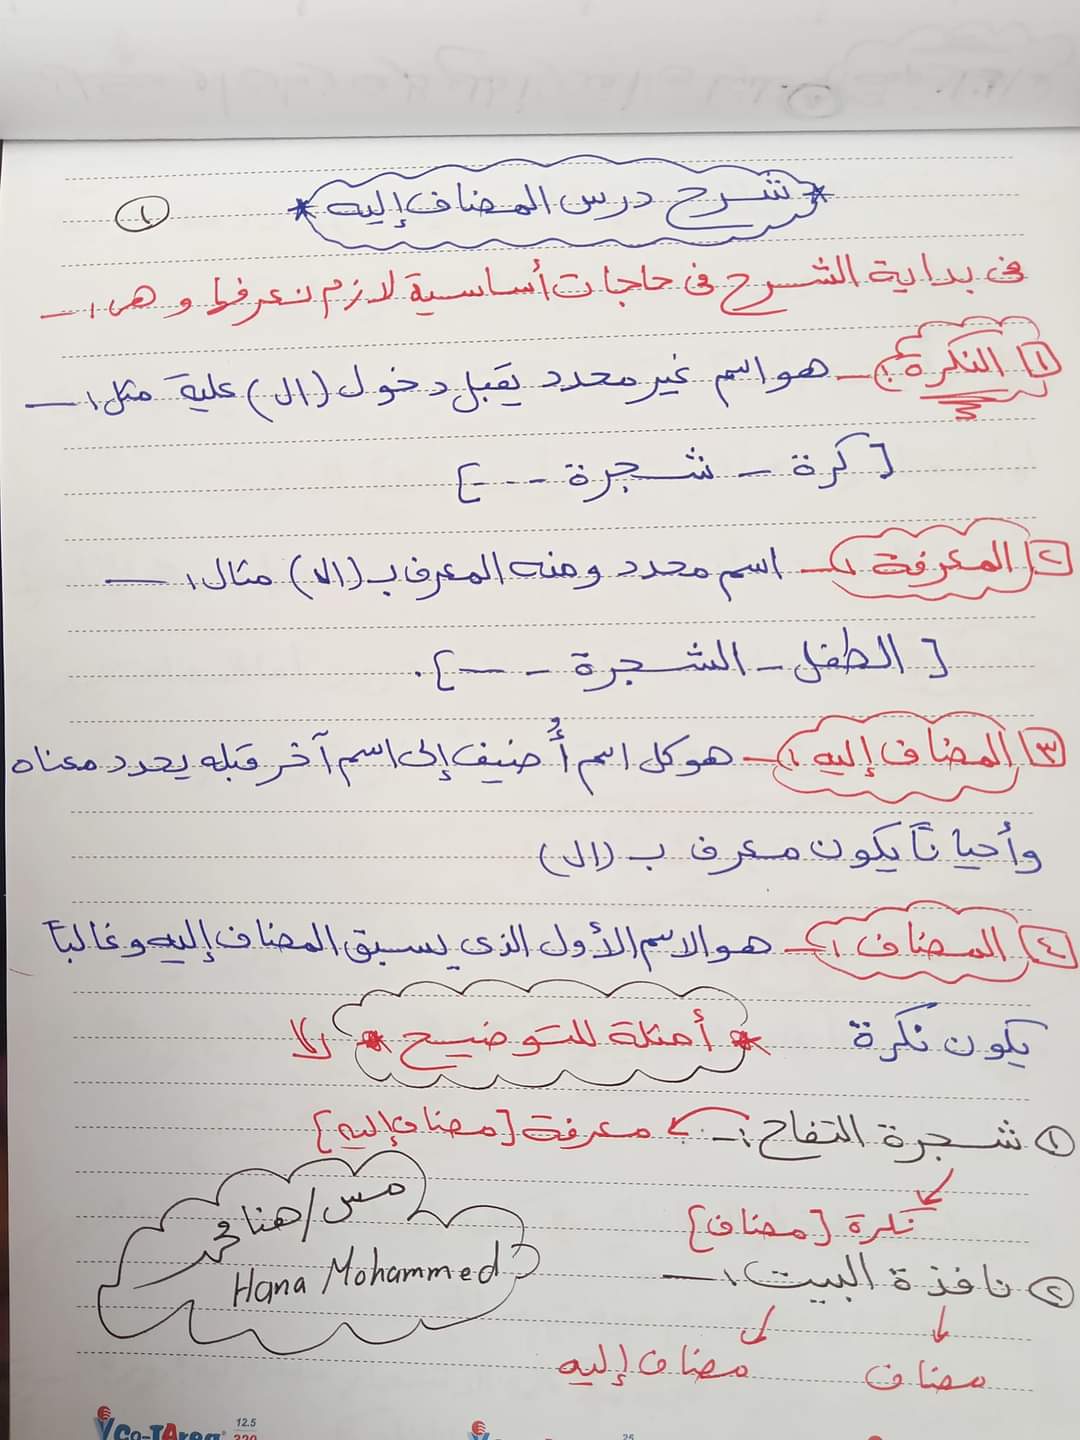 * شرح درس المضاف إليه *
١
فى بداية الشرح فى حاجات أساسية لازم نعرفها وهى :ـ
١ النكرة :ـ هو اسم غير محدد يقبل دخول (ال) عليه مثل :ـ
[كرة - شجرة - - -]
٢ المعرفة :ـ اسم محدد ومنه المعرف بـ (ال) مثال :ـ
[الطفل - الشجرة - - -].
٣ المضاف إليه :ـ هو كل اسم أُضيف إلى اسم آخر قبله يحدد معناه
وأحياناً يكون معرف بـ (ال)
٤ المضاف :ـ هو الاسم الأول الذى يسبق المضاف إليه وغالباً
يكون نكرة
* أمثلة للتوضيح *
١ شجرة التفاح :ـ معرفة [مضاف إليه]
نكرة [مضاف]
٢ نافذة البيت :ـ
مضاف مضاف إليه
مس/ هنا محمد
Hana Mohammed
Co-TArea
12.5
320
25